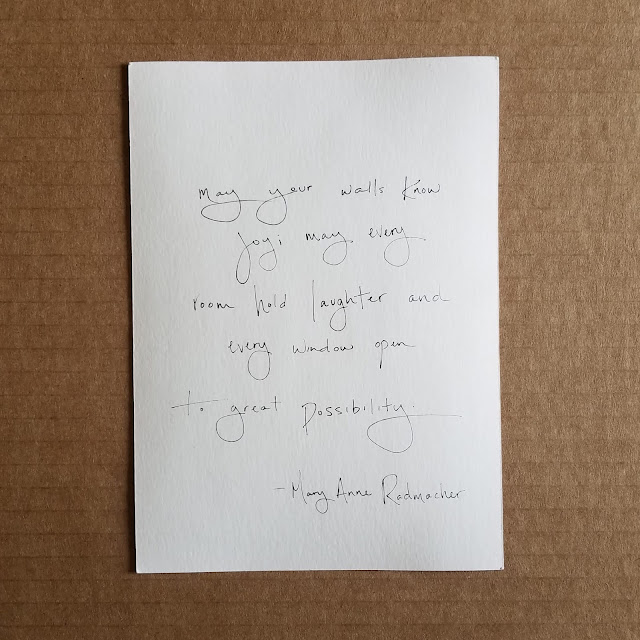 May your walls know
joy; may every
room hold laughter and
every window open
to great possibility.
-Mary Anne Radmacher